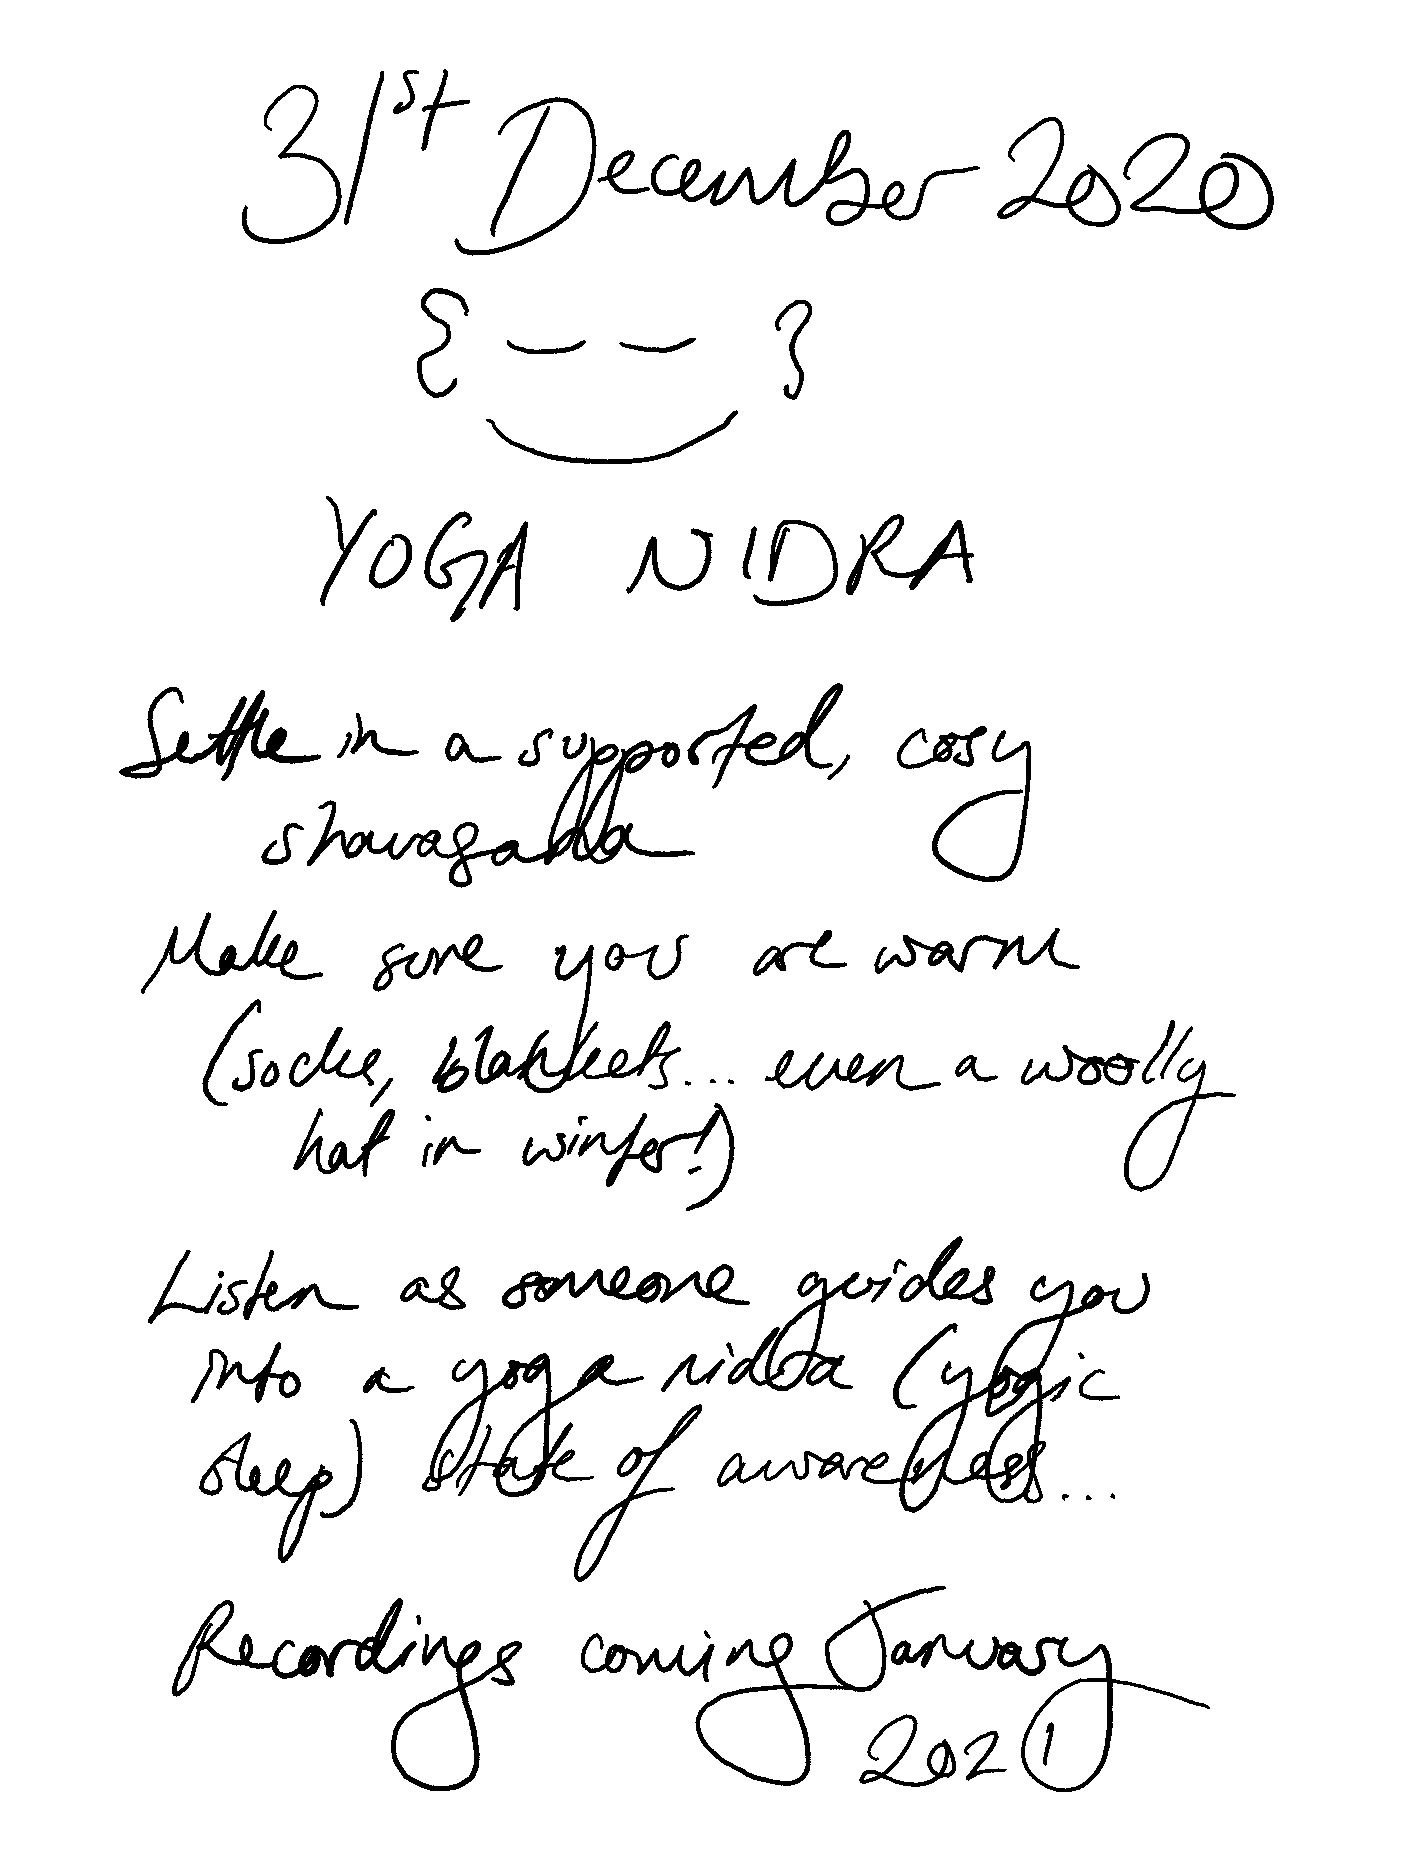 31st December 2020
YOGA NIDRA
Settle in a supported, cosy
shavasana
Make sure you are warm
(socks, blankets... even a woolly
hat in winter!)
Listen as someone guides you
into a yoga nidra (yogic
sleep) state of awareness...
Recordings coming January
2021